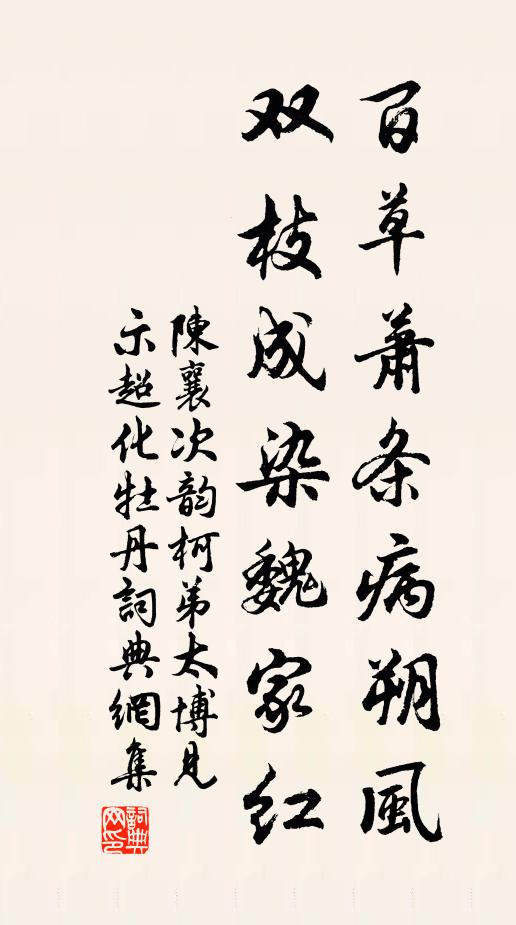 百草蕭条病朔風
双枝成染魏家红
陳襄次韵柯弟太博見
示超化牡丹詞典網集
詞典网印